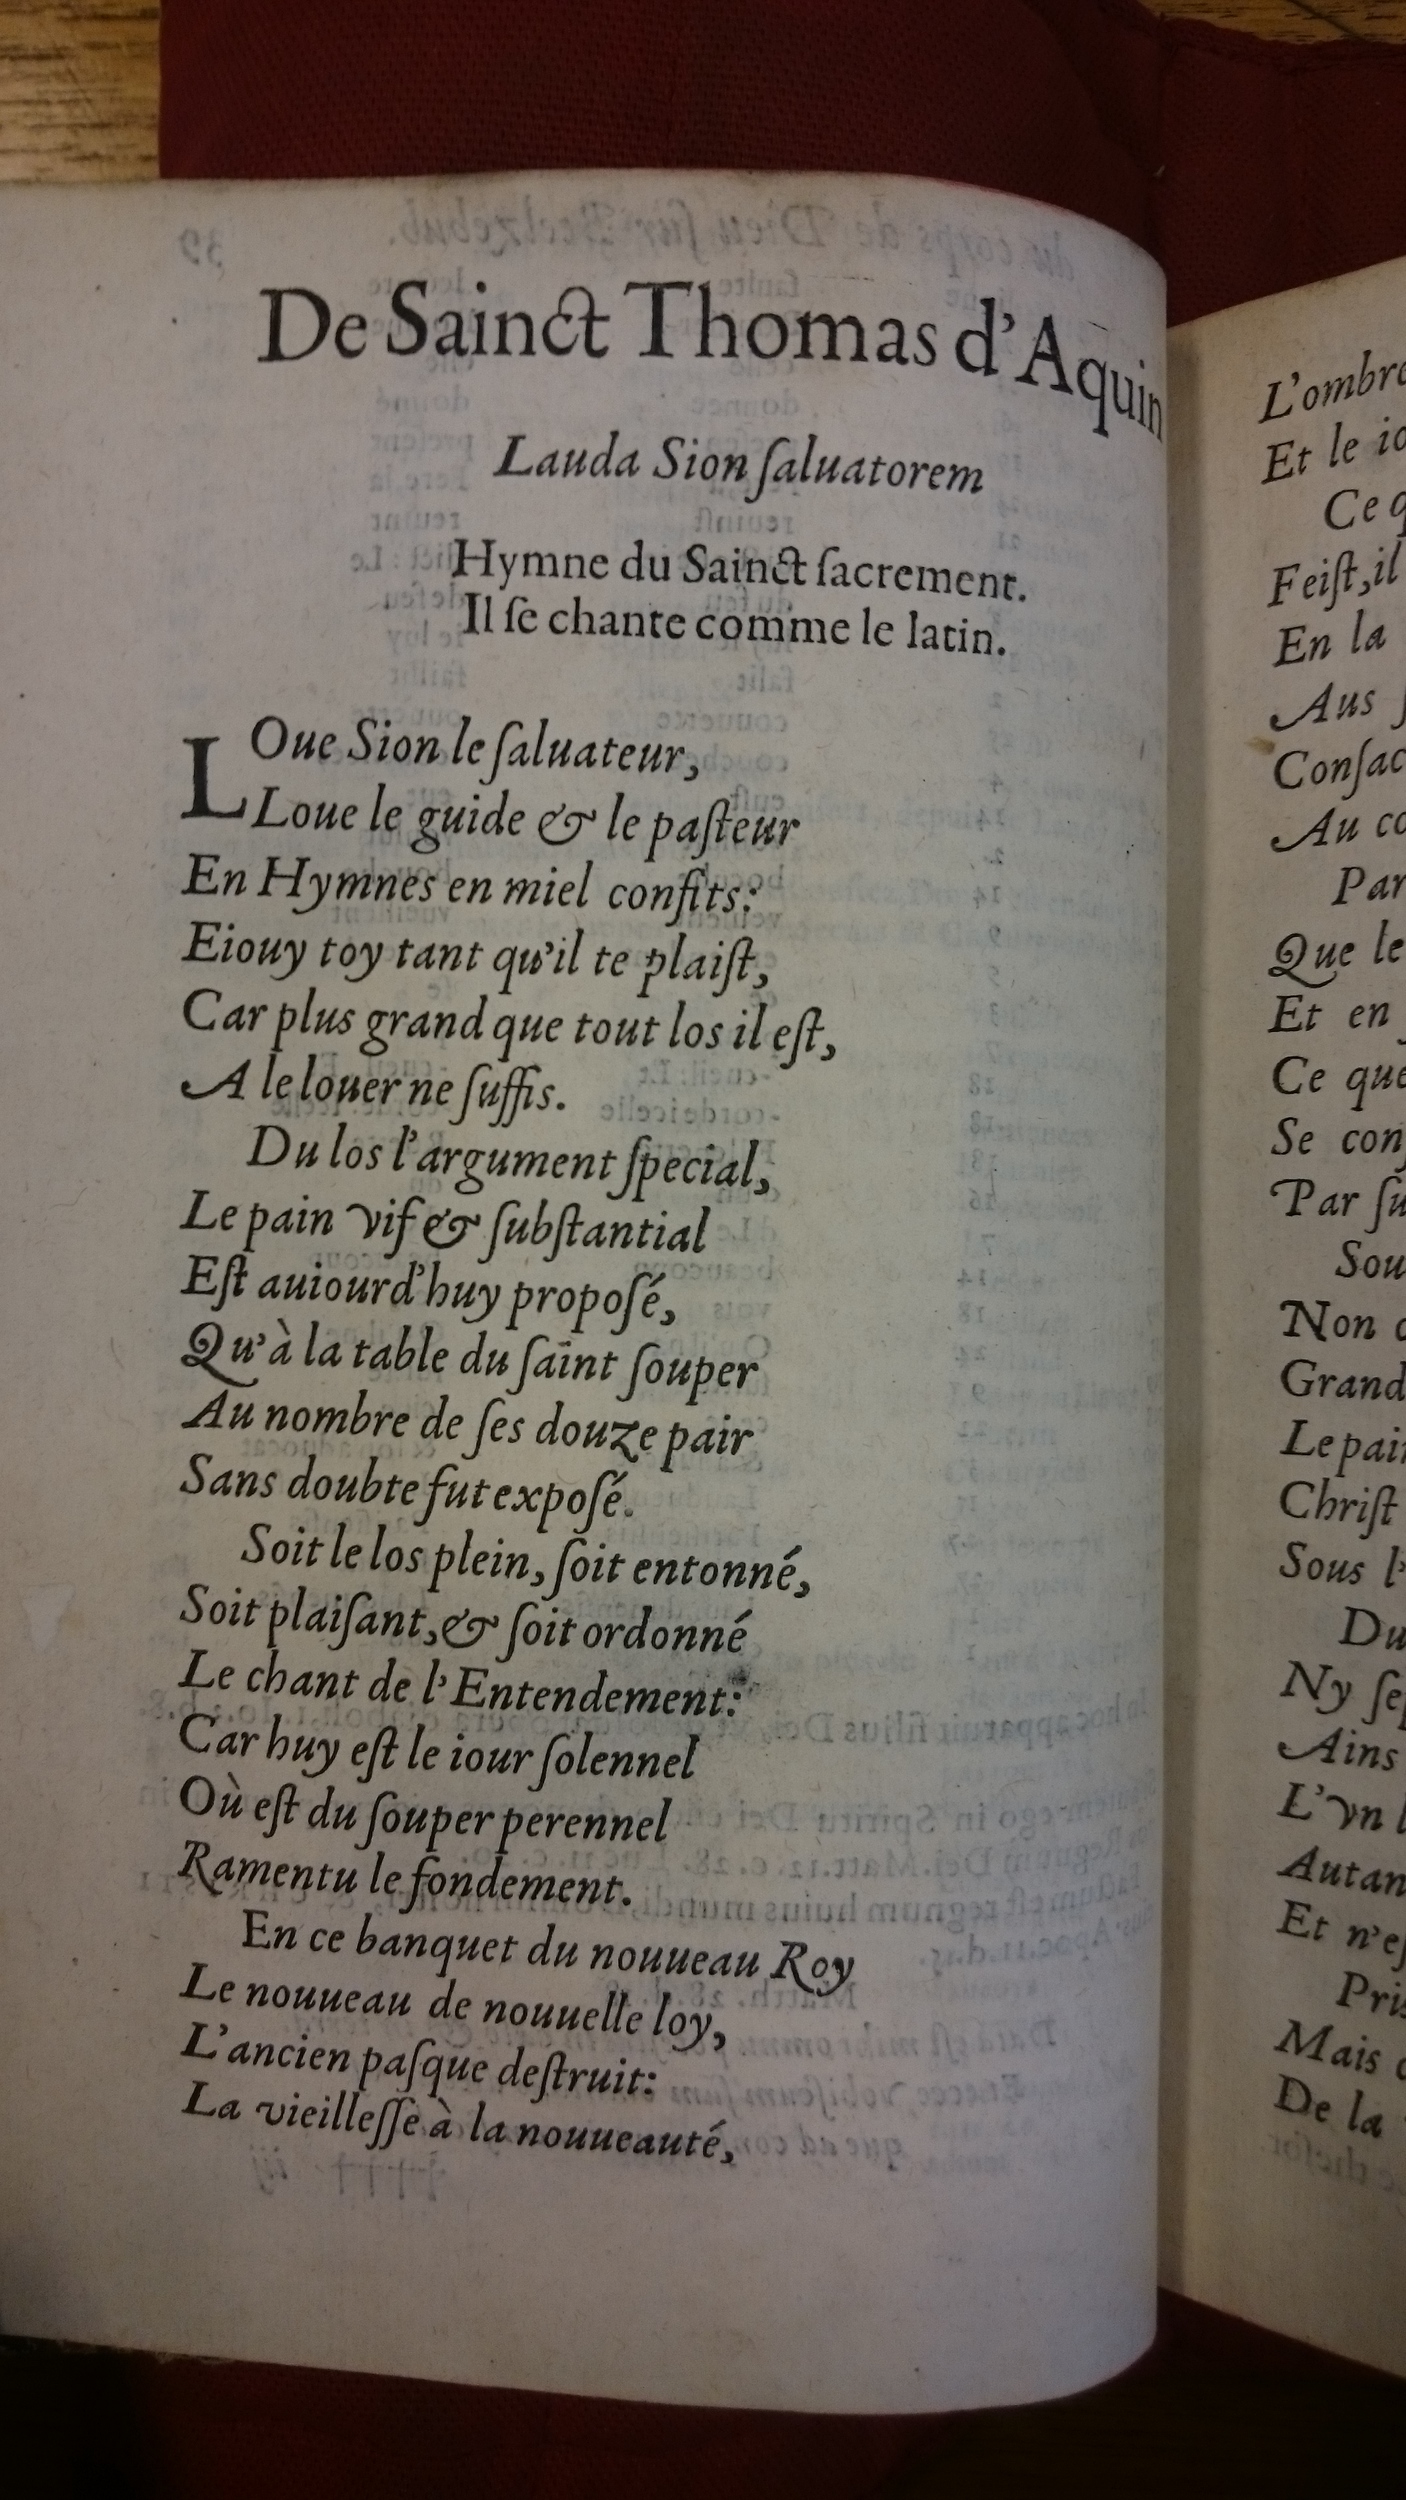 De Sainct Thomas d'Aquin
Lauda Sion ſaluatorem
Hymne du Sainct ſacrement.
Il ſe chante comme le latin.
LOue Sion le ſaluateur,
Loue le guide & le paſteur
En Hymnes en miel confits:
Eiouy toy tant qu'il te plaiſt,
Car plus grand que tout los il eſt,
A le louer ne ſuffis.
Du los l'argument ſpecial,
Le pain vif & ſubſtantial
Eſt auiourd'huy propoſé,
Qu'à la table du ſaint ſouper
Au nombre de ſes douze pair
Sans doubte fut expoſé.
Soit le los plein, ſoit entonné,
Soit plaiſant, & ſoit ordonné
Le chant de l'Entendement:
Car huy eſt le iour ſolennel
Où eſt du ſouper perennel
Ramentu le fondement.
En ce banquet du nouueau Roy
Le nouueau de nouuelle loy,
L'ancien paſque deſtruit:
La vieilleſſe à la nouueauté,
L'ombre
Et le
Ce
Feiſt, il
En la
Aus
Au
Par
Que le
Et en
Ce que
Se
Par
Non
Grand
Le pain
Chriſt
Sous
Du
Ny
Ains
L'vn
Et
Mais
De la